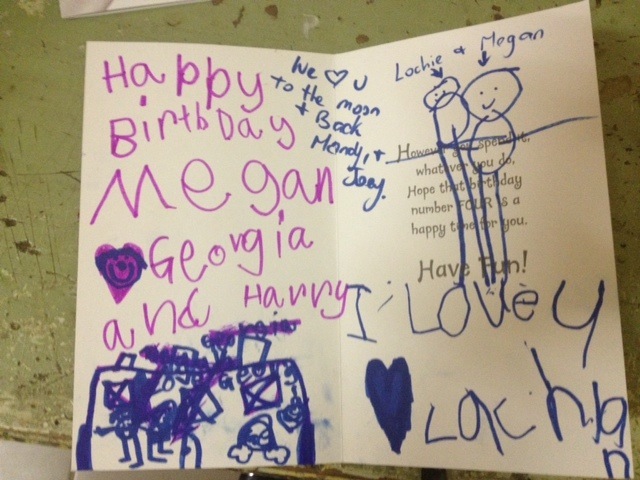 Happy
Birthday
Megan
Georgia
and Harry
We ♥ U
to the moon
+ Back
Mandy, +
Joey.
Lochie + Megan
However you spend it,
whatever you do,
Hope that birthday
number FOUR is a
happy time for you.
Have Fun!
I LOVe y
Lachlan